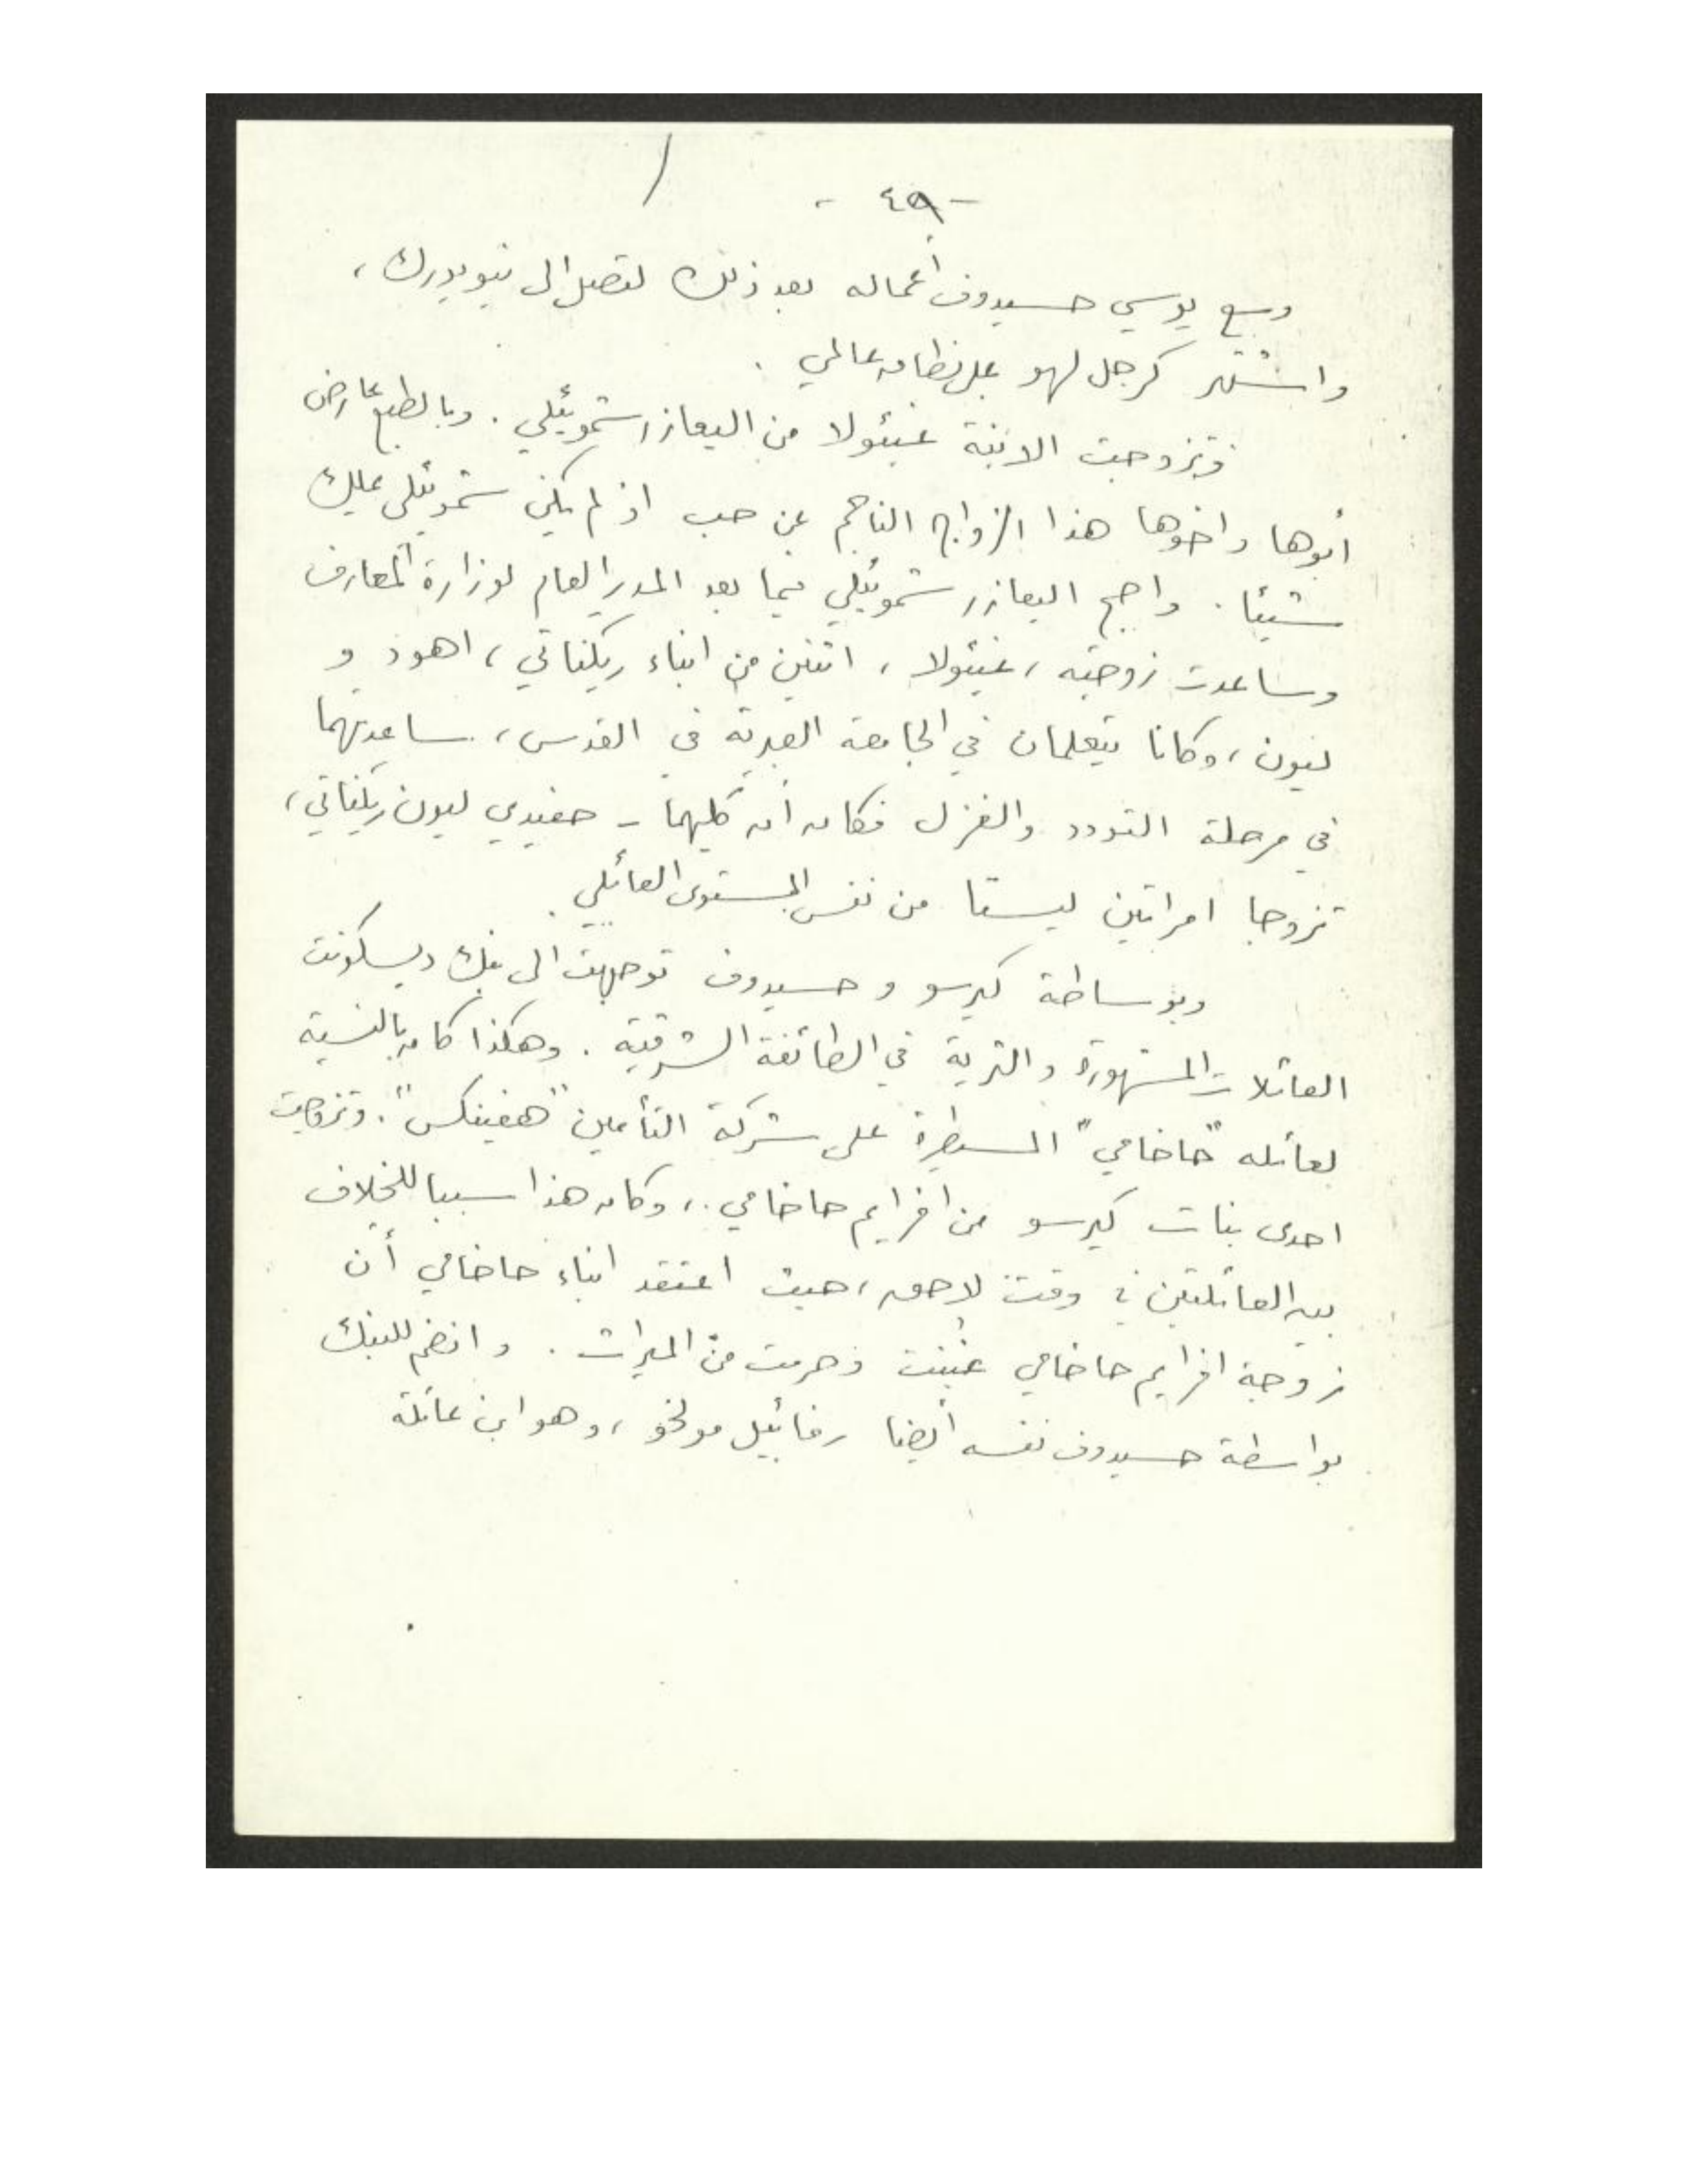 - ٤٩ -
وسع يوسي حسيدوف أعماله بعد ذلك لتصل الى نيويورك ،
واشتهر كرجل لهو على نطاق عالمي .
وتزوجت الابنة غيئولا من اليعازر شموئيلي . وبالطبع عارض
أبوها واخوها هذا الزواج الناجم عن حب اذ لم يكن شموئيلي يملك
شيئا . واصبح اليعازر شموئيلي فيما بعد المدير العام لوزارة المعارف
وساعدت زوجته ، غيئولا ، اثنين من ابناء ريكناتي ، اهود و
ليون ، وكانا يتعلمان في الجامعة العبرية في القدس ، ساعدتهما
في مرحلة التودد والغزل فكان أن كليهما - حفيدي ليون ريكناتي ،
تزوجا امراتين ليستا من نفس المستوى العائلي .
وبوساطة كيرسو و حسيدوف توجهت الى بنك ديسكونت
العائلات المشهورة والثرية في الطائفة الشرقية . وهكذا كان بالنسبة
لعائله "حاخامي" المسيطرة على شركة التأمين "هفينكس" . وتزوجت
احدى بنات كيرسو من افرايم حاخامي . ، وكان هذا سببا للخلاف
بين العائلتين في وقت لاحق ، حيث اعتقد ابناء حاخامي أن
زوجة افرايم حاخامي غبنت وحرمت من الميراث . وانضم للبنك
بواسطة حسيدوف نفسه أيضا رفائيل مولخو ، وهو ابن عائلة